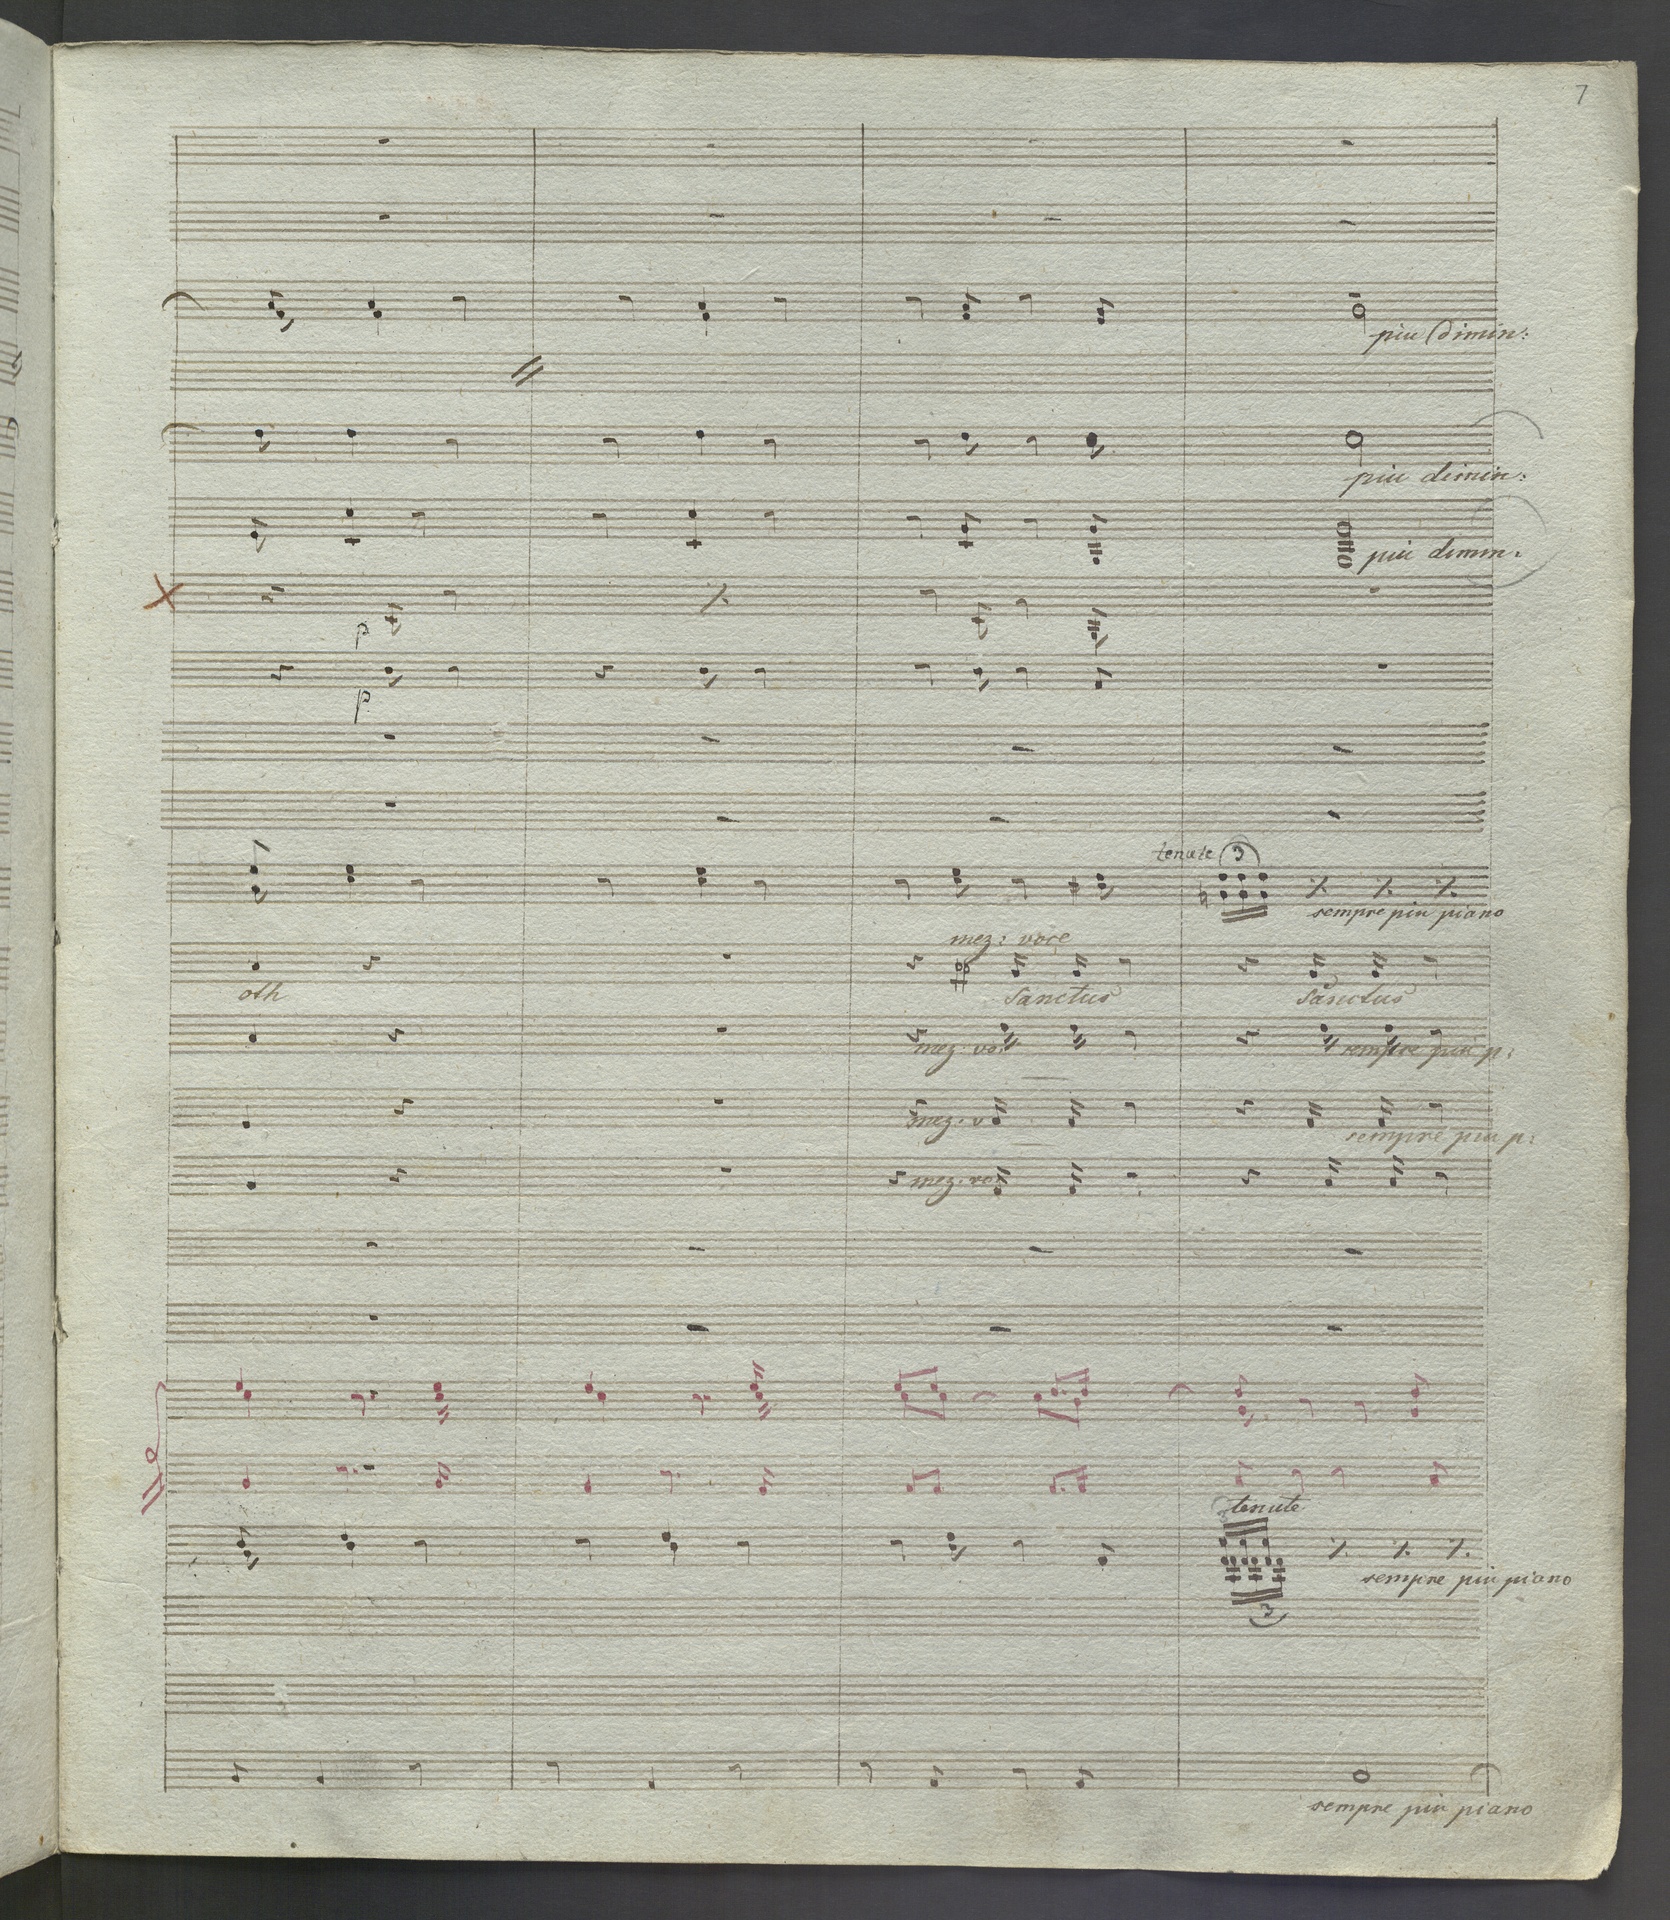 7
piu dimin:
piu dimin:
piu dimin:
p
p
tenute 3
sempre piu piano
mez: voce
oth Sanctus Sanctus
mez: vo: sempre piu p:
mez. v
sempre piu p:
mez. vo:
tenute
sempre piu piano
3
sempre piu piano